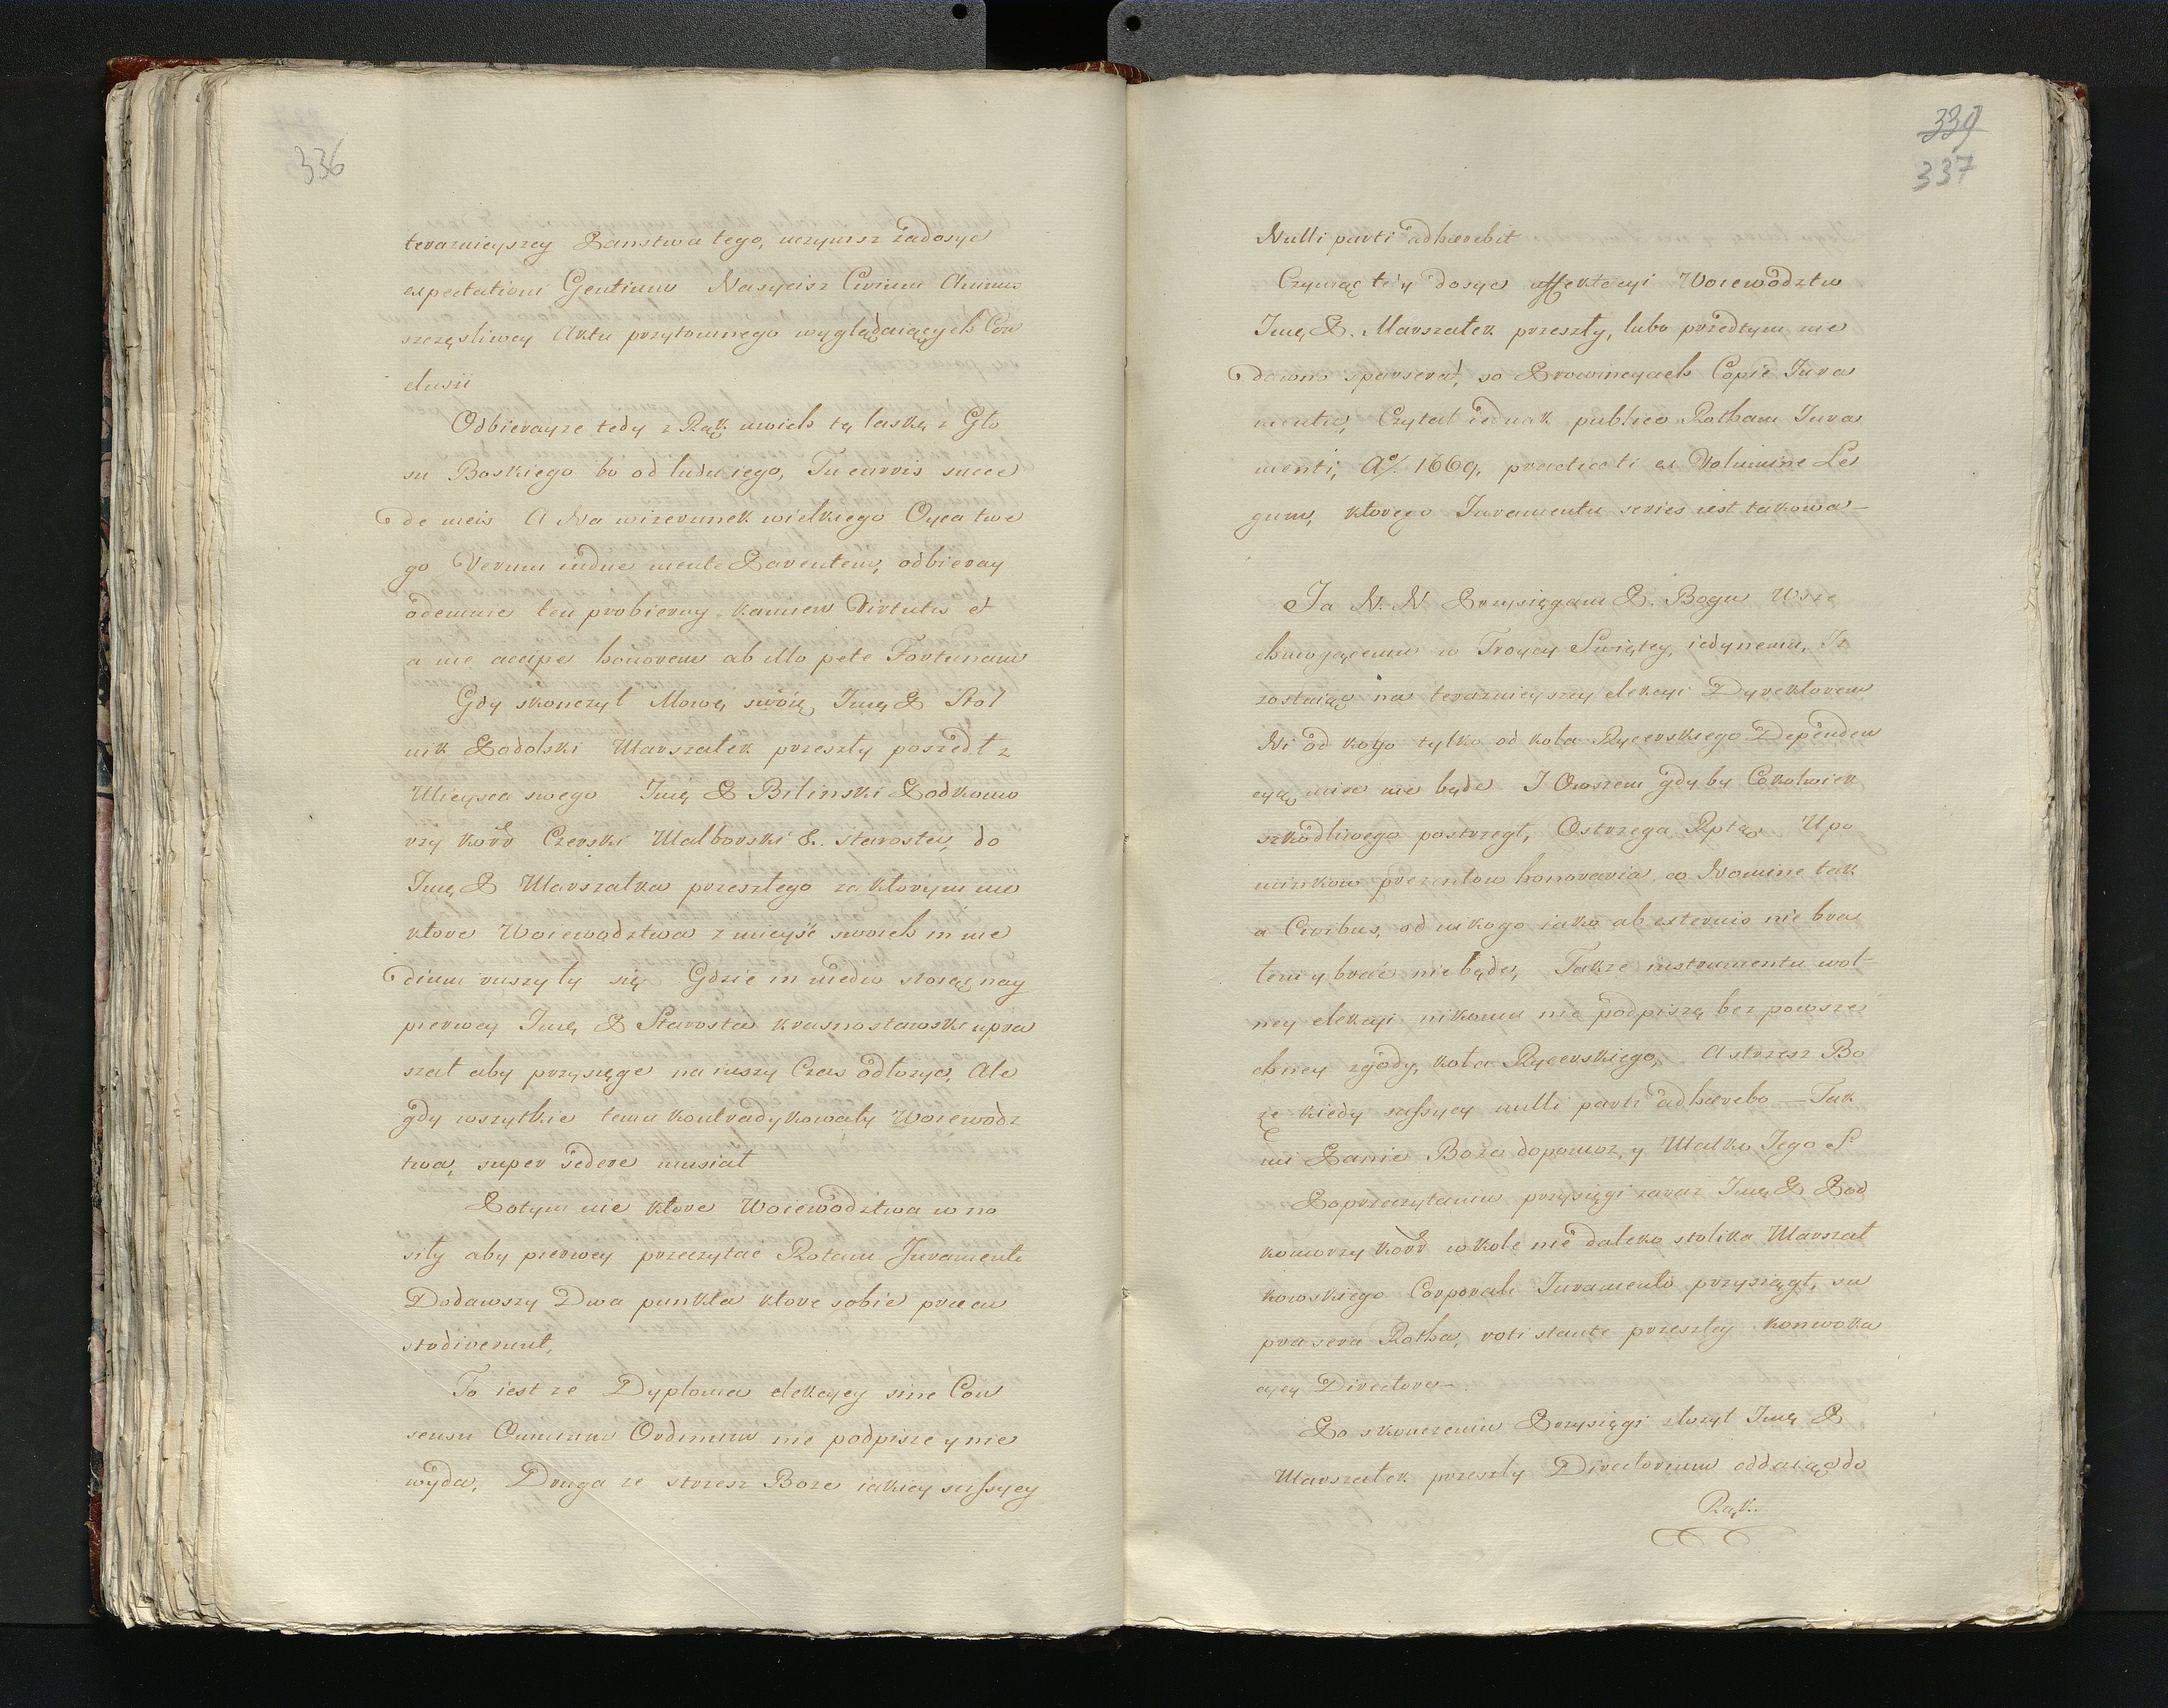 336
teraznieyszey Panstwa tego, uczynisz zadosyc
expectationi Gentium Nasycisz Civium Animus
szczęsliwey Aktu przytomnego wyglądaiących Con
clusii
Odbierayze tedy z Rąk moich tę laskę z Glo
su Boskiego bo od ludu iego, Tu curris succe
de meis A Na wizerunek wielkiego Oyca twe
go Verum indue mente Parentem, odbieray
odemnie ten probierny kamien Virtutis et
a me accipe honorem ab illo pete Fortunam
Gdy skonczył Mowę swoię Jmę P Stol
nik Podolski Marszałek przeszły poszedł z
Mieysca swego Jmę P Bilinski Podkomo
rzy kor̃ Czerski Malborski &. starosta, do
Jmę P Marszałka przeszłego za ktorym nie
ktore Woiewodztwa z mieysc swoich in me
dium ruszyły się Gdzie in medio stoiąc nay
pierwey Jmę P Starosta krasnostawski upra
szał aby przysięge na inszy Czas odłozyc, Ale
gdy wszytkie temu kontradykowały Woiewodz
twa, super sedere musiał
Potym nie ktore Woiewodztwa wno
siły aby pierwey przeczytac Rotam Juramenti
Dodawszy Dwa punkta ktore sobie praecu
stodiverunt,
To iest ze Dyploma elekcyey sine Con
sensu Omnium Ordinum nie podpisze y nie
wyda, Druga ze strzesz Boze iakiey scissyey
339
337
Nulli parti adhaerebit
Czyniąc tedy dosyc affektacyi Woiewodztw
Jmę P. Marszałek przeszły, lubo przedtym nie
dawno sparserat, po Prowincyach Copie Jura
mentu, Czytał iednak publico Rotham Jura
menti, A⁰. 1669, practicati ex Volumine Le
gum, ktorego Juramentu series iest takowa —
Ja N. N Przysięgam P. Bogu Wsze
chmogącemu w Troycy Swiętey, iedynemu, Iz
zostaiąc na teraznieyszey elekcyi Dyrektorem
Ni od kogo tylko od koła Rycerskiego Dependen
cyą miec nie będe I Owszem gdy by Cokolwiek
szkodliwego postrzegł, Ostrzega Rptą Upo
minkow prezentow honoraria, eo Nomine tak
a Civibus, od nikogo iako ab externis nie bra
łem y brać nie będę, Takze instrumentu wol-
ney elekcyi nikomu nie podpiszę bez powsze
chney zgody, koła Rycerskiego, A strzesz Bo
ze kiedy scissyey nulli parti adhaerebo — Tak
mi Panie Boze dopomoz, y Matko Jego S:
Poprzeczytaniu przysięgi zaraz Jmę P Pod
komorzy kor̃ w kole nie daleko stolika Marszał
kowskiego Corporali Juramento przysiągł, su
pra sera Rotha, roti stante przeszłey konwoka
cyey Directore —.
Po skonczeniu Przysięgi złozył Jmę P
Marszałek przeszły Directorium oddaiąc do
Rąk.